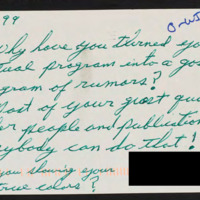 99 O-WI
why have you turned you
tual program into a gos
gram of rumors?
ost of your guest quo
er people and publication
ybody can do that!
you showing your
true colors?